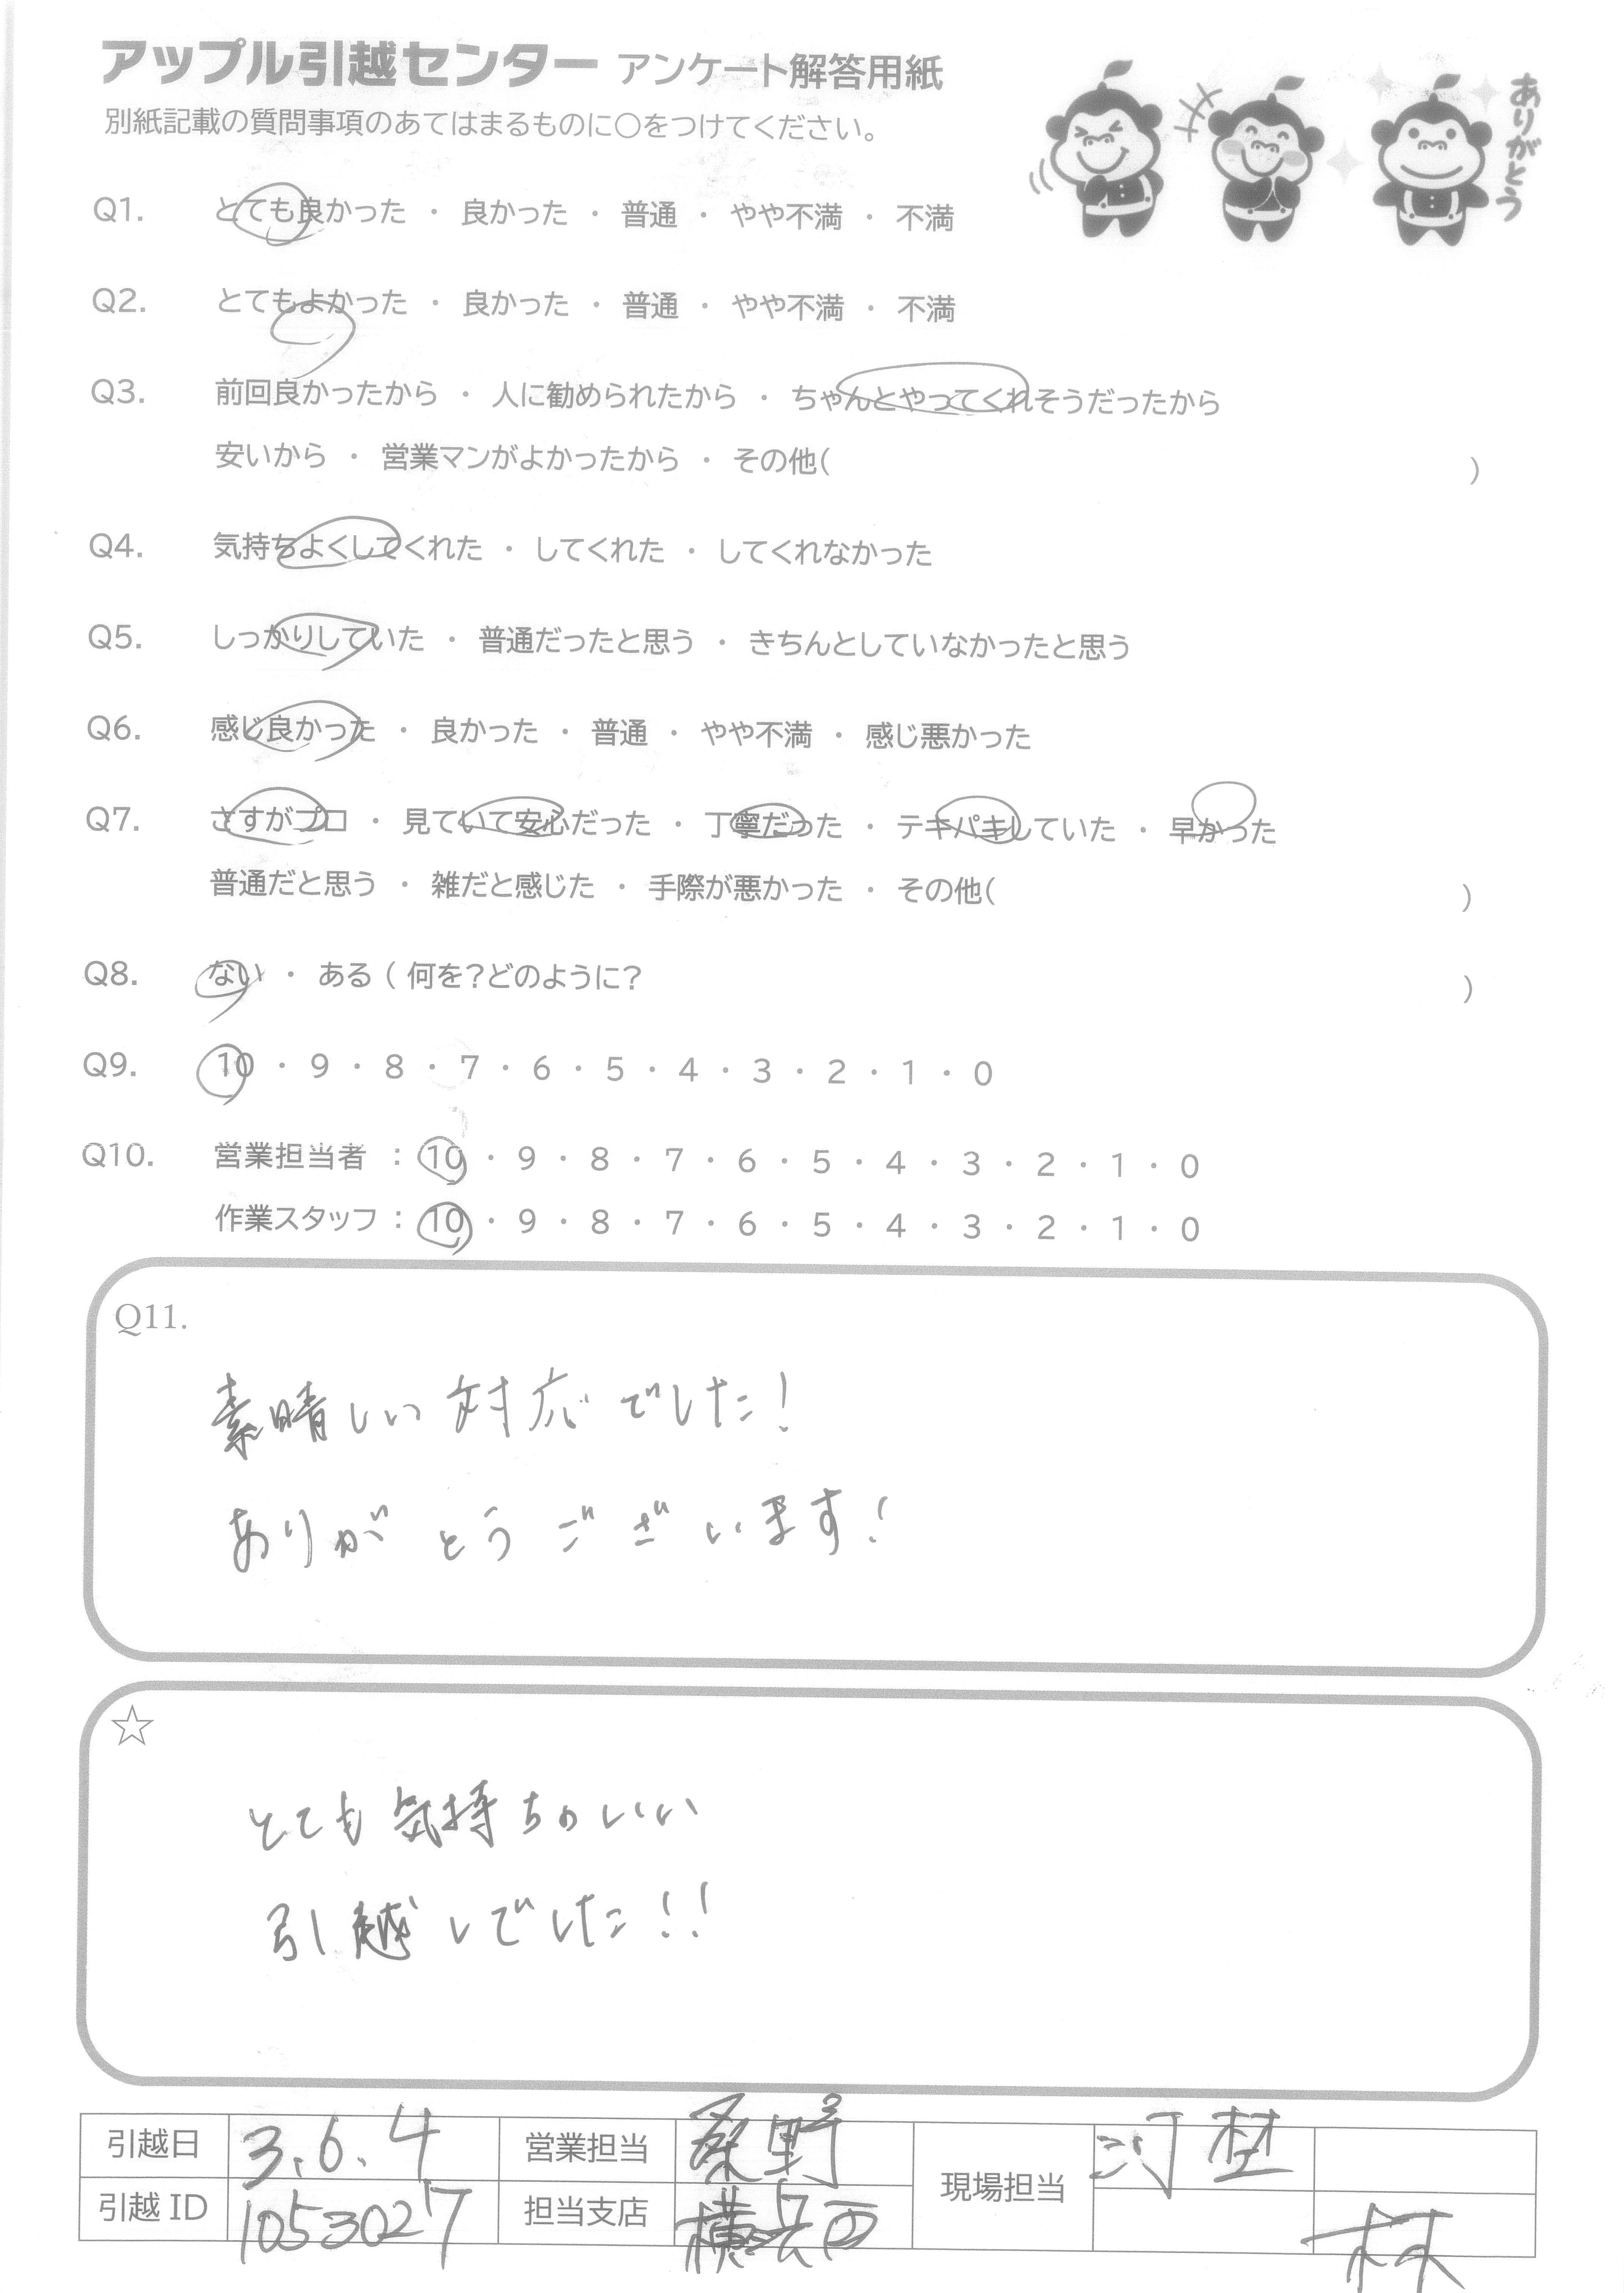 アップル引越センター アンケート解答用紙
別紙記載の質問事項のあてはまるものに○をつけてください。
ありがとう
Q1. とても良かった ・ 良かった ・ 普通 ・ やや不満 ・ 不満
Q2. とてもよかった ・ 良かった ・ 普通 ・ やや不満 ・ 不満
Q3. 前回良かったから ・ 人に勧められたから ・ ちゃんとやってくれそうだったから
安いから ・ 営業マンがよかったから ・ その他( )
Q4. 気持ちよくしてくれた ・ してくれた ・ してくれなかった
Q5. しっかりしていた ・ 普通だったと思う ・ きちんとしていなかったと思う
Q6. 感じ良かった ・ 良かった ・ 普通 ・ やや不満 ・ 感じ悪かった
Q7. さすがプロ ・ 見ていて安心だった ・ 丁寧だった ・ テキパキしていた ・ 早かった
普通だと思う ・ 雑だと感じた ・ 手際が悪かった ・ その他( )
Q8. ない ・ ある ( 何を?どのように? )
Q9. 10 ・ 9 ・ 8 ・ 7 ・ 6 ・ 5 ・ 4 ・ 3 ・ 2 ・ 1 ・ 0
Q10. 営業担当者 : 10 ・ 9 ・ 8 ・ 7 ・ 6 ・ 5 ・ 4 ・ 3 ・ 2 ・ 1 ・ 0
作業スタッフ : 10 ・ 9 ・ 8 ・ 7 ・ 6 ・ 5 ・ 4 ・ 3 ・ 2 ・ 1 ・ 0
Q11.
素晴しい対応でした!
ありがとうございます!
☆
とても気持ちのいい
引越しでした!!
引越日 3.6.4 営業担当 桑野 現場担当
引越ID 1053027 担当支店 横浜西 林